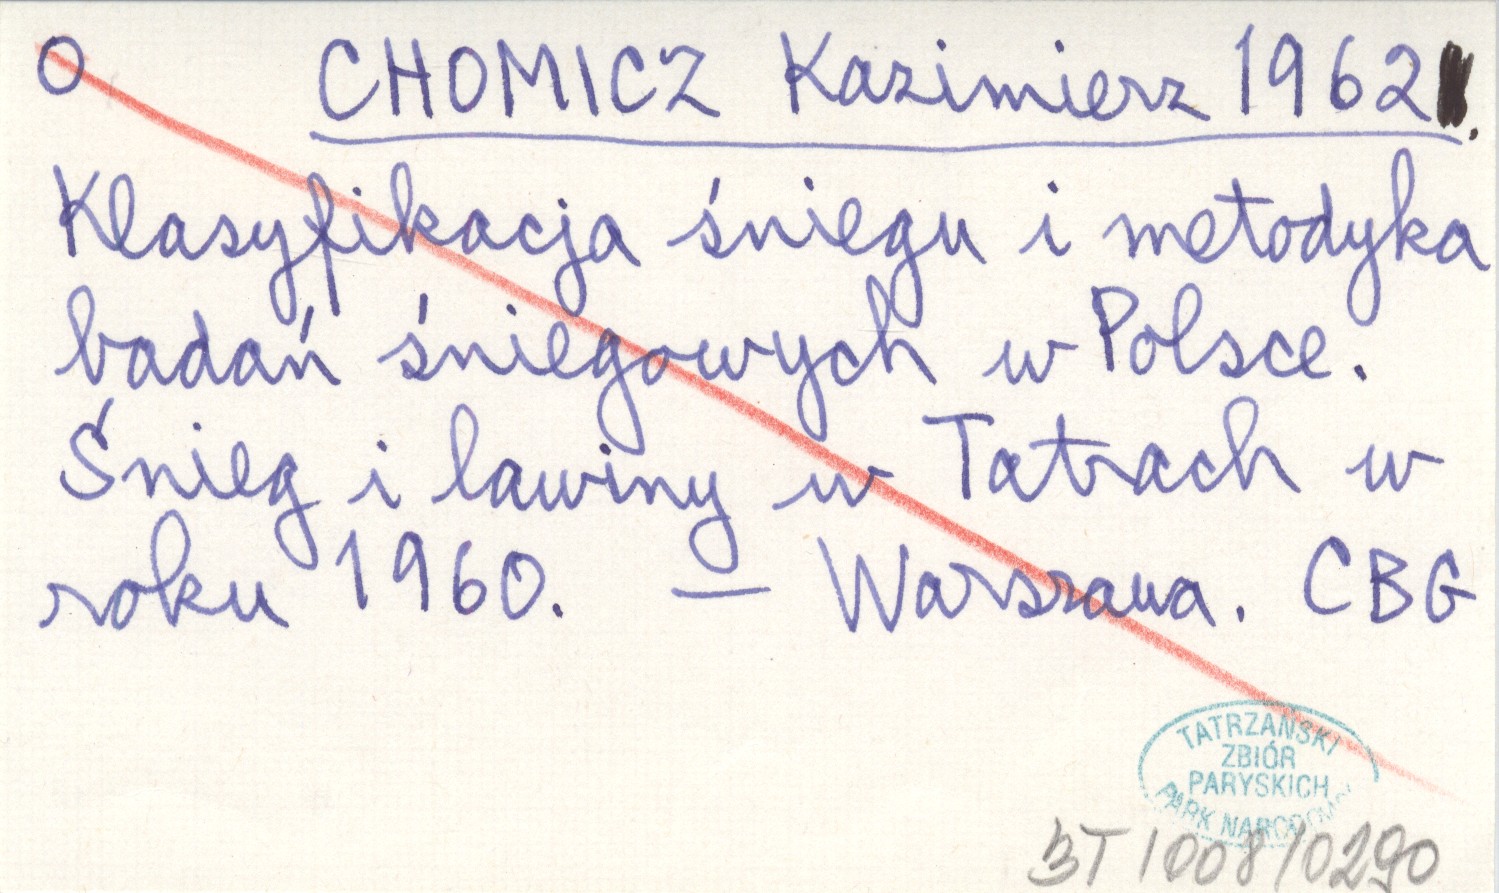 O CHOMICZ Kazimierz 1962.
Klasyfikacja śniegu i metodyka
badań śniegowych w Polsce.
Śnieg i lawiny w Tatrach w
roku 1960. — Warszawa. CBG
TATRZAŃSKI
ZBIÓR
PARYSKICH
PARK NARODOWY
BT 1008/0290